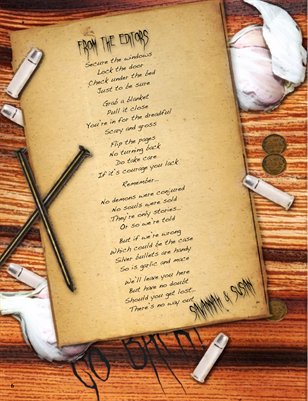 FROM THE EDITORS
Secure the windows
Lock the door
Check under the bed
Just to be sure
Grab a blanket
Pull it close
You're in for the dreadful
Scary and gross
Flip the pages
No turning back
Do take care
If it's courage you lack
Remember--
No demons were conjured
No souls were sold
They're only stories...
Or so we're told
But if we're wrong
Which could be the case
Silver bullets are handy
So is garlic and mace
We'll leave you here
But have no doubt
Should you get lost...
There's no way out
SAVANNAH & SUSAN
GO
6